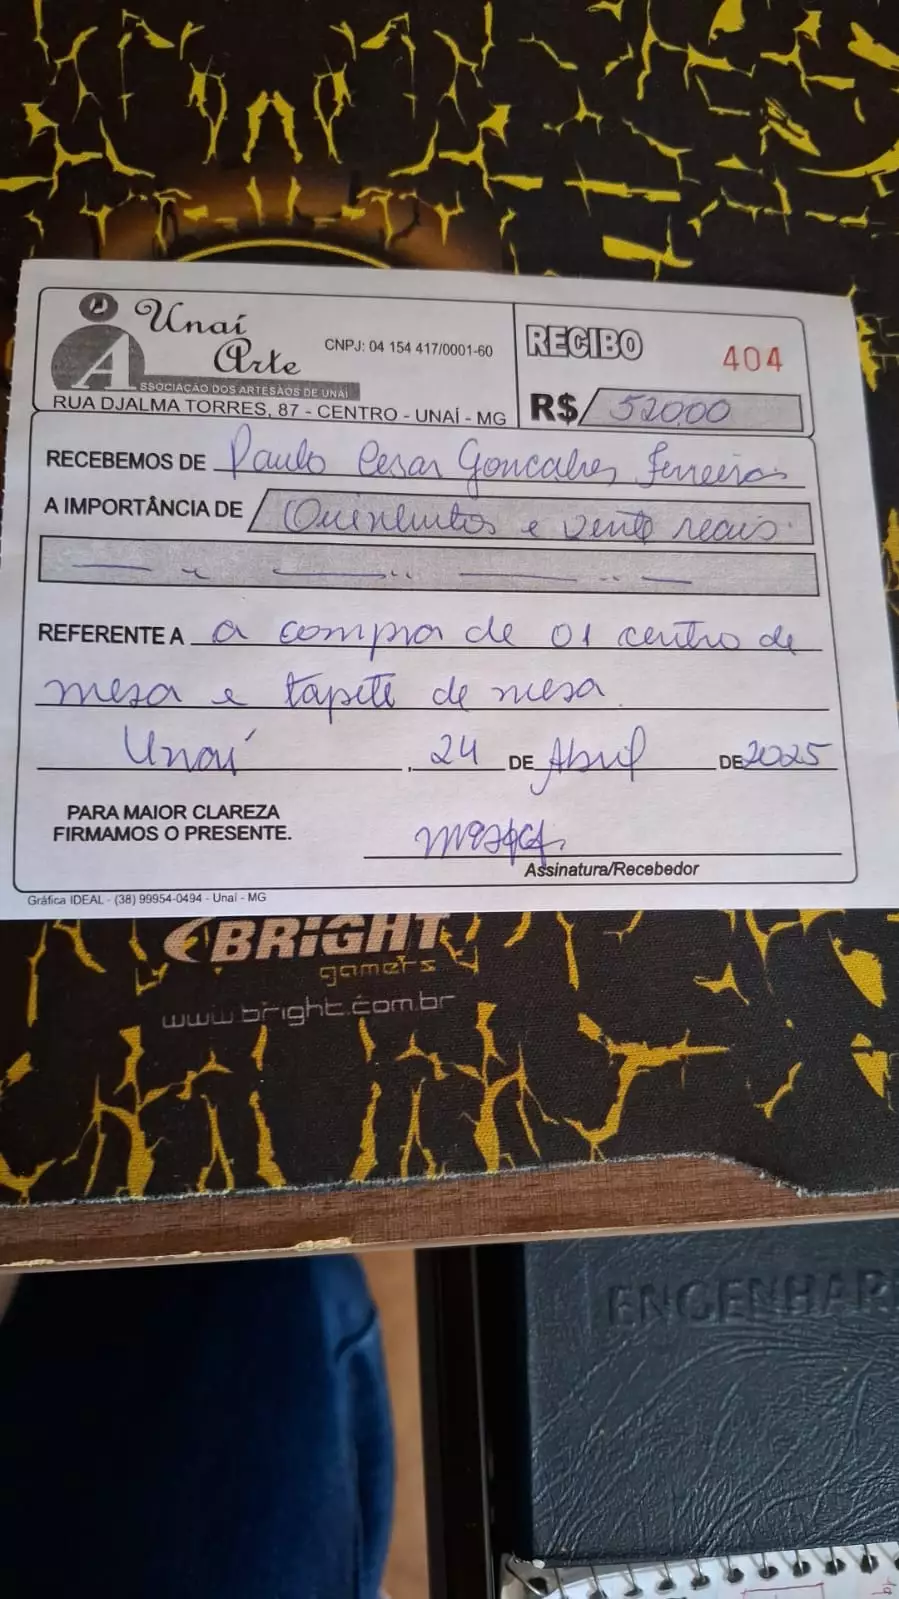 Unaí
Arte
CNPJ: 04 154 417/0001-60
A
SSOCIAÇÃO DOS ARTESÃOS DE UNAÍ
RUA DJALMA TORRES, 87 - CENTRO - UNAÍ - MG
RECIBO
404
R$ 520,00
RECEBEMOS DE Paulo Cesar Goncalves Ferreira
A IMPORTÂNCIA DE Quinhentos e vente reais
REFERENTE A a compra de 01 centro de
mesa e tapete de mesa
Unaí, 24 DE Abril DE 2025
PARA MAIOR CLAREZA
FIRMAMOS O PRESENTE.
Assinatura/Recebedor
Gráfica IDEAL - (38) 99954-0494 - Unaí - MG
BRIGHT
gamers
www.bright.com.br
ENGENHAR